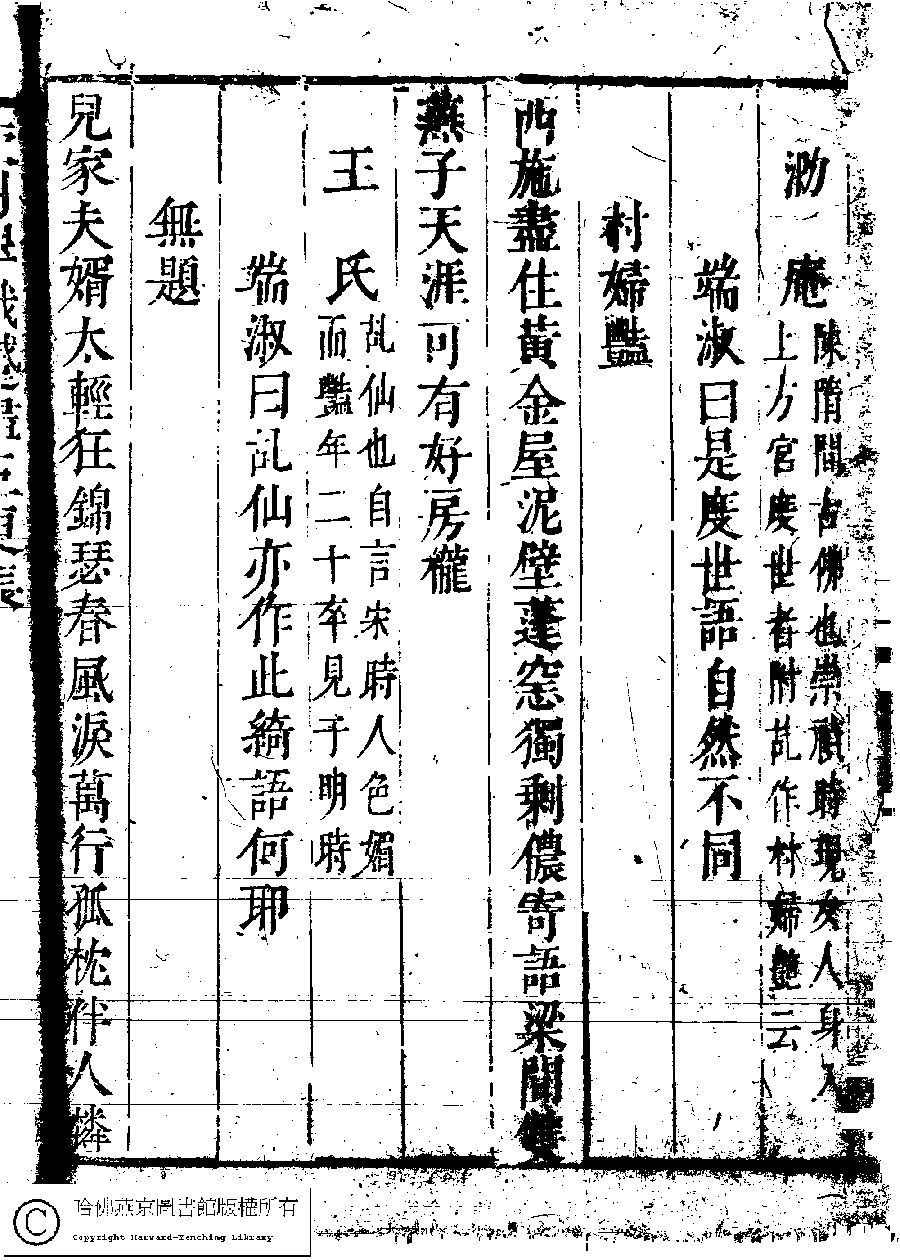 泐庵
陳隋間古佛也崇禎時現女人身入
上方宮慶世者附乩作村婦艷云
端淑曰是慶世語自然不同
村婦豔
西施盡住黃金屋泥壁蓬窓獨剩儂寄語梁間雙
燕子天涯可有好房櫳
王氏
乩仙也自言宋時人色媚
而豔年二十卒見于明時
端淑曰乩仙亦作此綺語何耶
無題
兒家夫婿太輕狂錦瑟春風淚萬行孤枕伴人憐
哈佛燕京圖書館版權所有
Copyright Harvard-Yenching Library